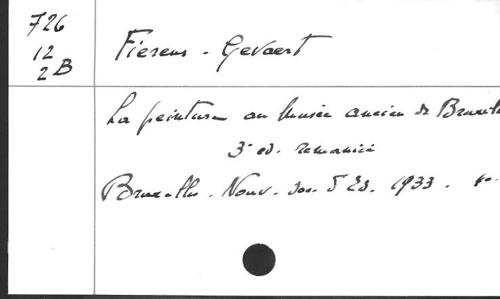 726
12
2B
Fierens - Gevaert
La peinture au Musée ancien de Bruxelle
3e ed. remaniée
Bruxelles. Nouv. Soc. d'Ed. 1933.